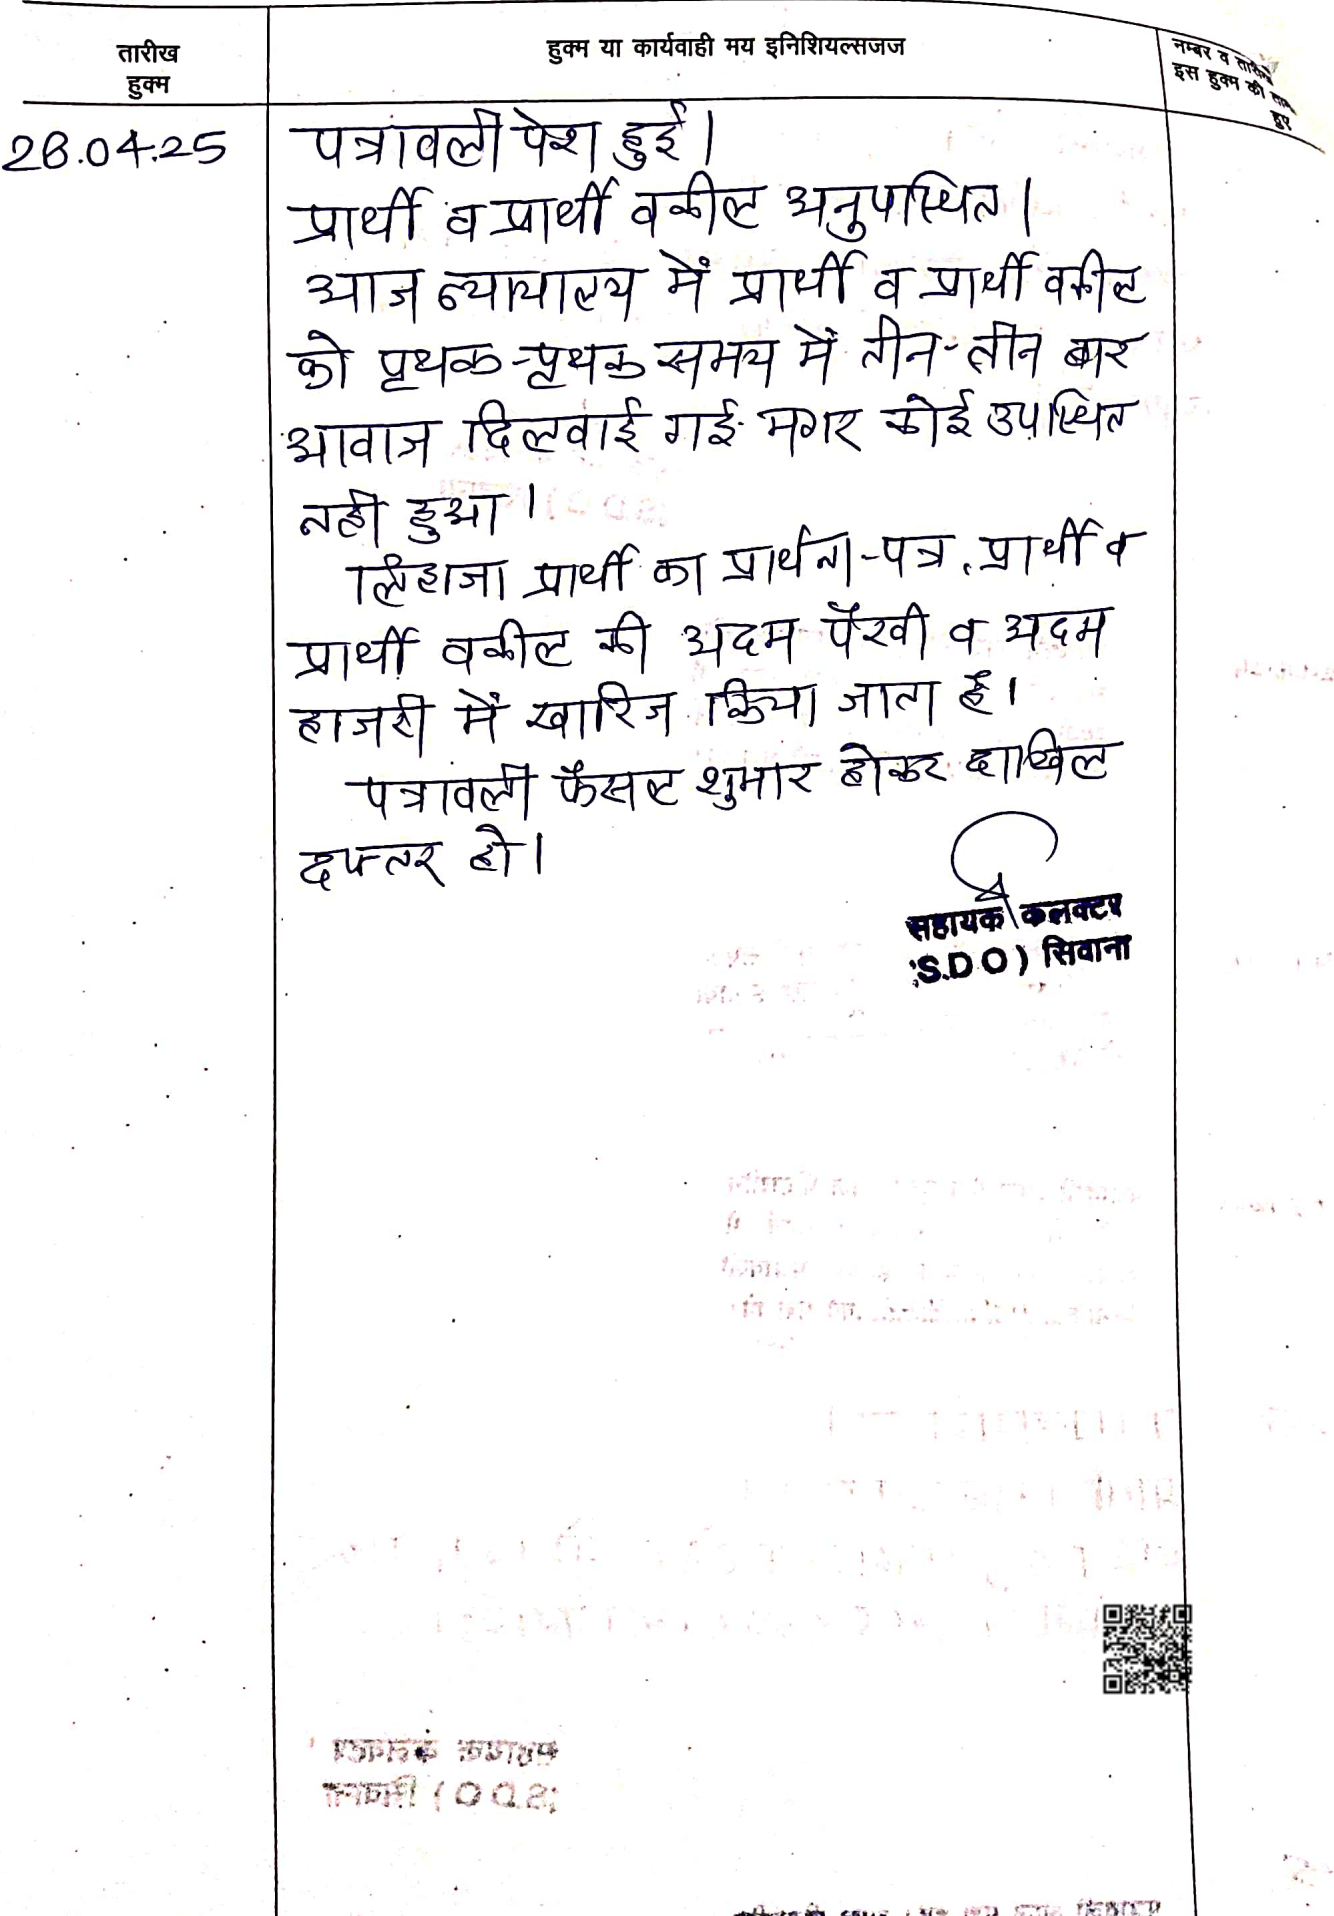 तारीख
हुक्म
हुक्म या कार्यवाही मय इनिशियल्सजज
नम्बर व तारीख
इस हुक्म की
हुए
28.04.25
पत्रावली पेश हुई।
प्रार्थी व प्रार्थी वकील अनुपस्थित।
आज न्यायालय में प्रार्थी व प्रार्थी वकील
को पृथक-पृथक समय में तीन-तीन बार
आवाज दिलवाई गई मगर कोई उपस्थित
नही हुआ।
लिहाजा प्रार्थी का प्रार्थना-पत्र, प्रार्थी व
प्रार्थी वकील की अदम पैरवी व अदम
हाजरी में खारिज किया जाता है।
पत्रावली फैसल शुमार होकर दाखिल
दफ्तर हो।
सहायक कलक्टर
(S.D.O) सिवाना